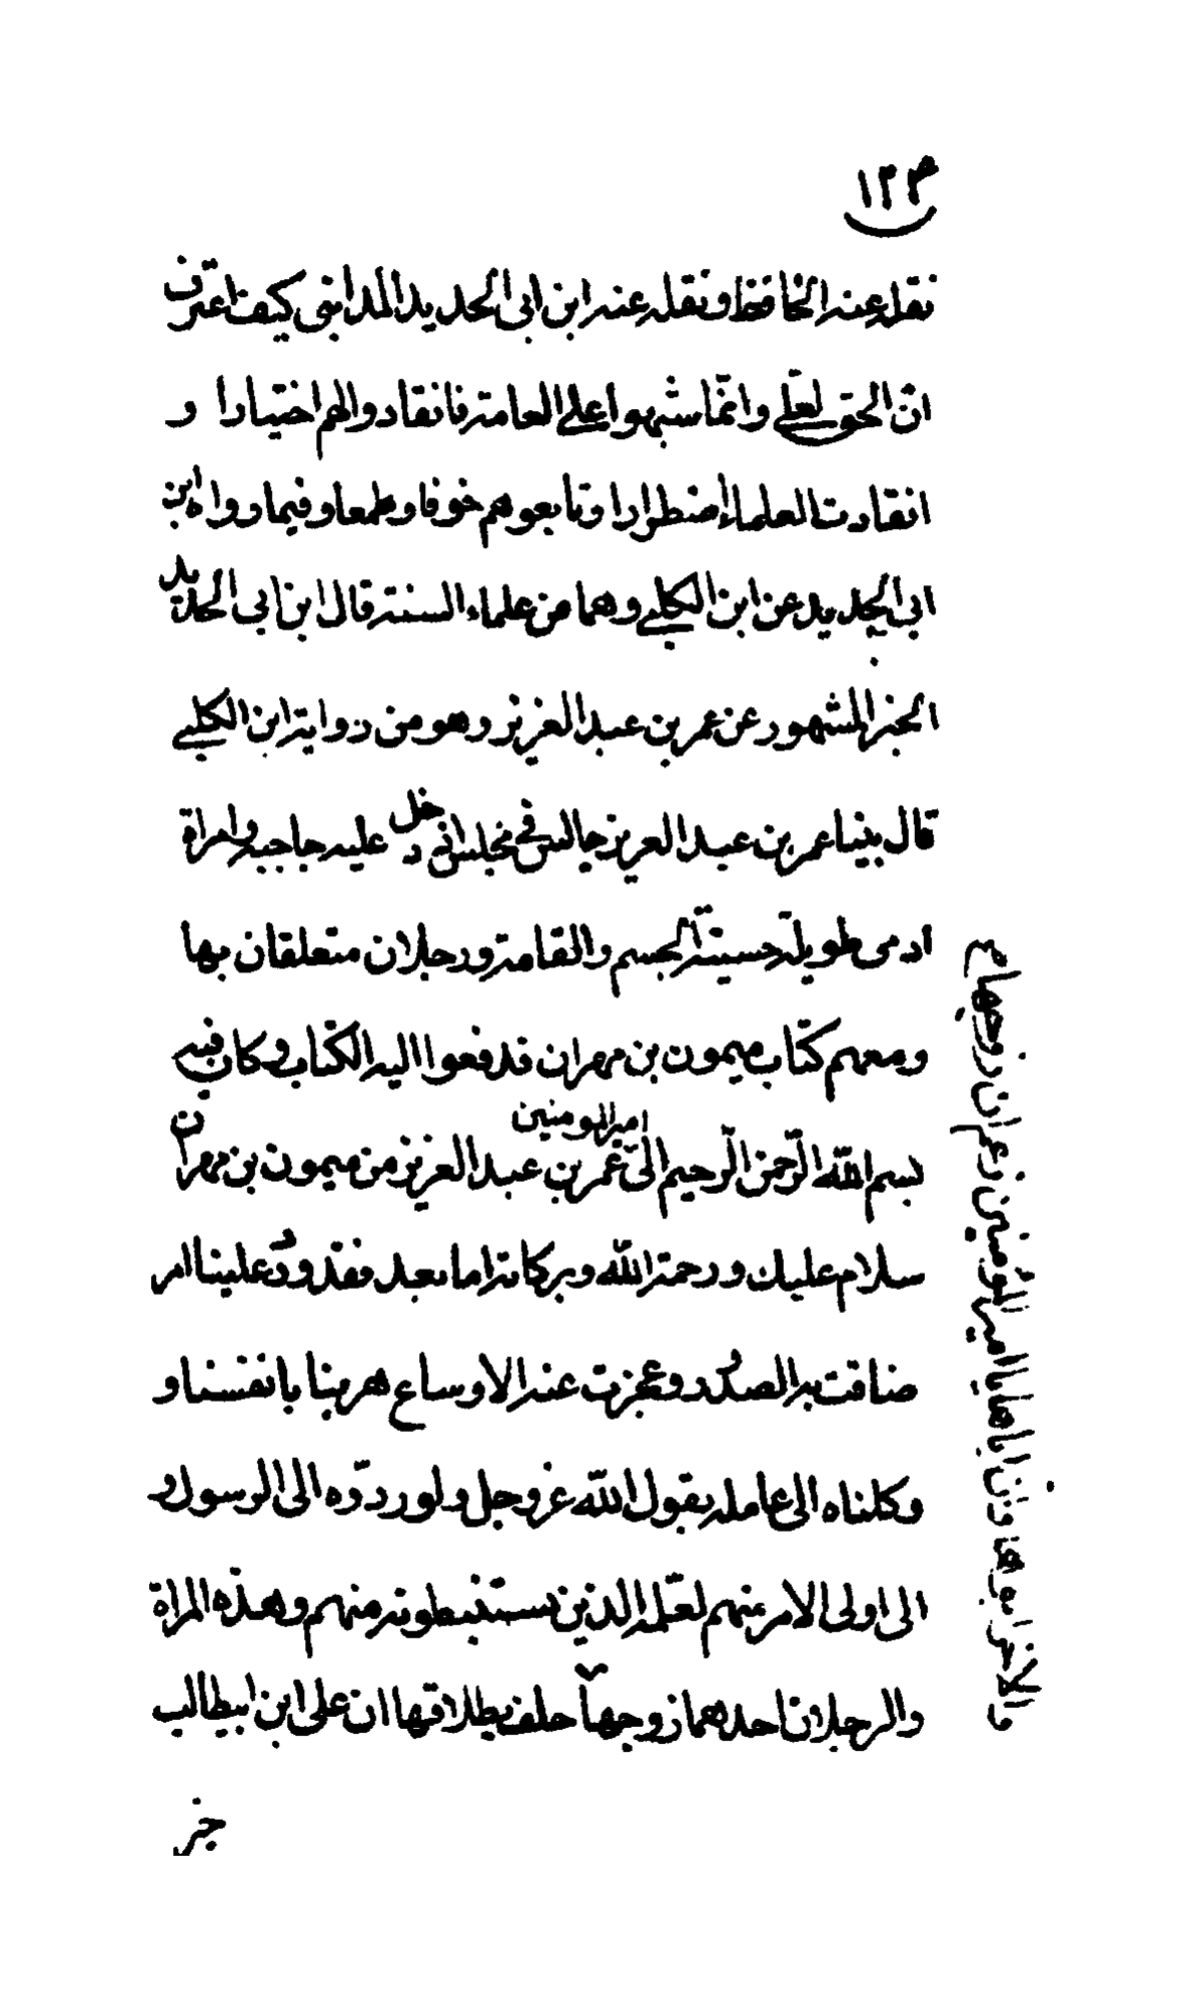 ١٣٣
نقله عنه الحافظ ونقله عنه ابن ابى الحديد المداينى كيف اعترف
ان الحق لعلى وانما شبهوا على العامة فانقادوا لهم اختيارا و
انقادت العلماء اضطرارا وتابعوهم خوفا وطمعا وفيما رواه ابن
ابى الحديد عن ابن الكلبى وهما من علماء السنة قال ابن ابى الحديد
الخبر المشهور عن عمر بن عبد العزيز وهو من رواية ابن الكلبى
قال بينا عمر بن عبد العزيز جالس فى مجلس اذ دخل عليه حاجبه وامراة
ادمى طويلة حسينة الجسم والقامة ورجلان متعلقان بها
ومعهم كتاب ميمون بن مهران فدفعوا اليه الكتاب وكان فيه
بسم الله الرّحمن الرّحيم الى امير المومنين عمر بن عبد العزيز من ميمون بن مهران
سلام عليك ورحمة الله وبركاته اما بعد فقد ورد علينا امر
ضاقت به الصدور وعجزت عنه الاوساع هربنا بانفسنا و
وكلناه الى عامله بقول الله عز وجل ولو ردّوه الى الرسول و
الى اولى الامر منهم لعلمه الذين يستنبطونه منهم وهذه المراة
والرجلان احدهما زوجها حلف بطلاقها ان على ابن ابيطالب
والاخر ابوها وان اباها يا امير المؤمنين زعم ان زوجها ع
خير